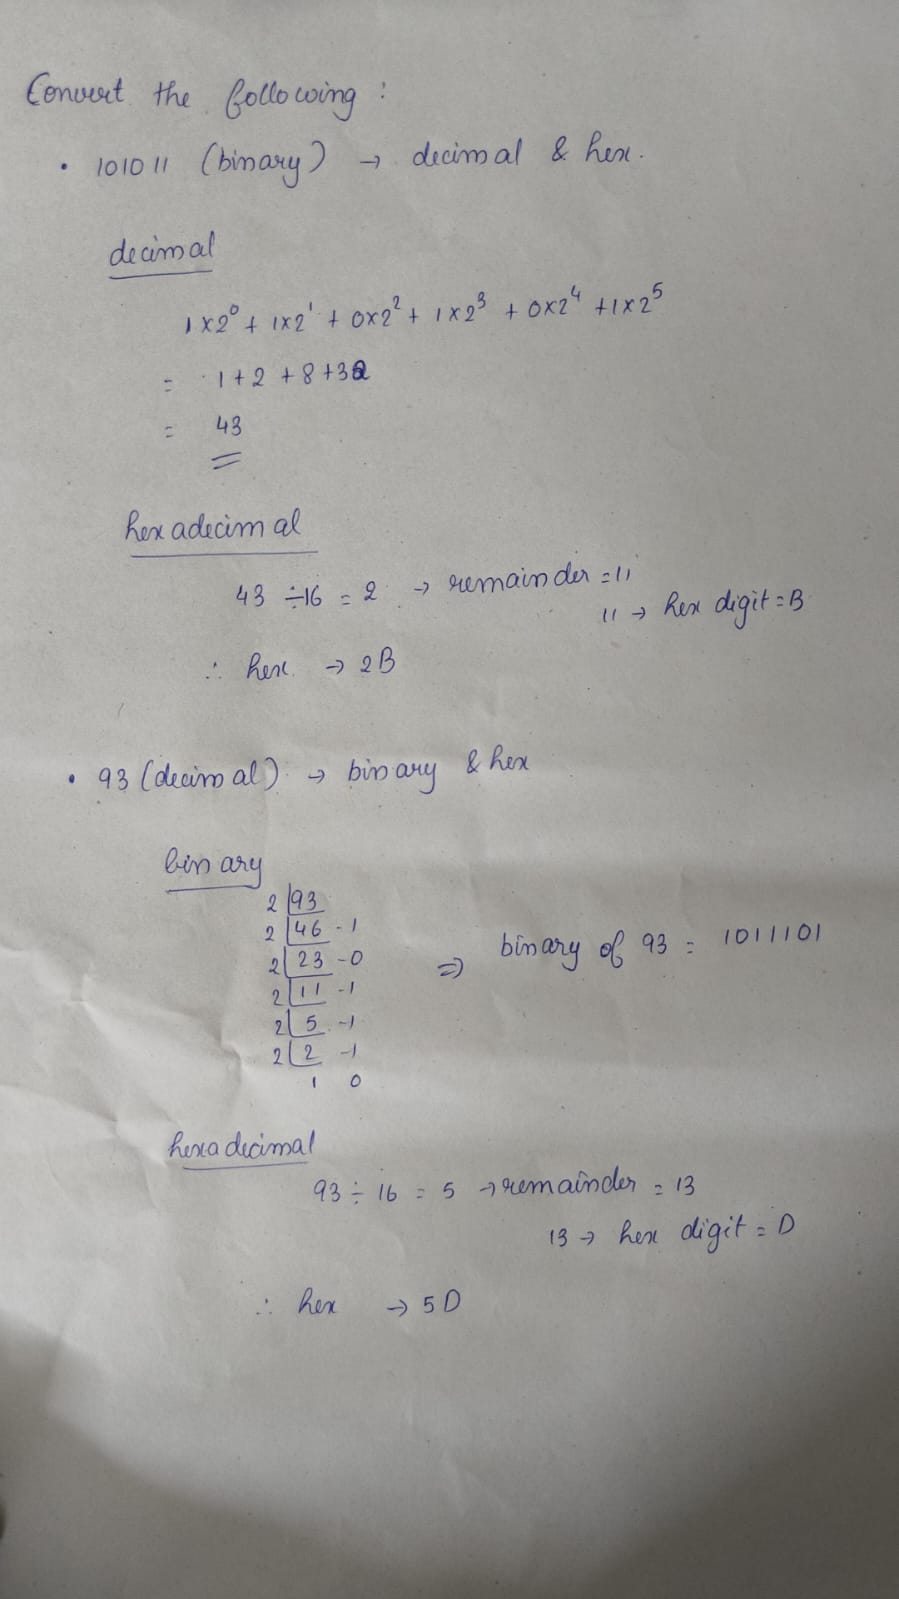 Convert the following :
• 101011 (binary) → decimal & hex.
decimal
1×2⁰ + 1×2¹ + 0×2² + 1×2³ + 0×2⁴ + 1×2⁵
= 1+2+8+32
= 43
hexadecimal
43 ÷16 = 2 → remainder = 11
11 → hex digit = B
∴ hex → 2B
• 93 (decimal) → binary & hex
binary
2 |93
2 |46 - 1
2 |23 - 0
2 |11 - 1
2 |5 - 1
2 |2 - 1
1 0
⇒ binary of 93 = 1011101
hexadecimal
93 ÷ 16 = 5 → remainder = 13
13 → hex digit = D
∴ hex → 5D